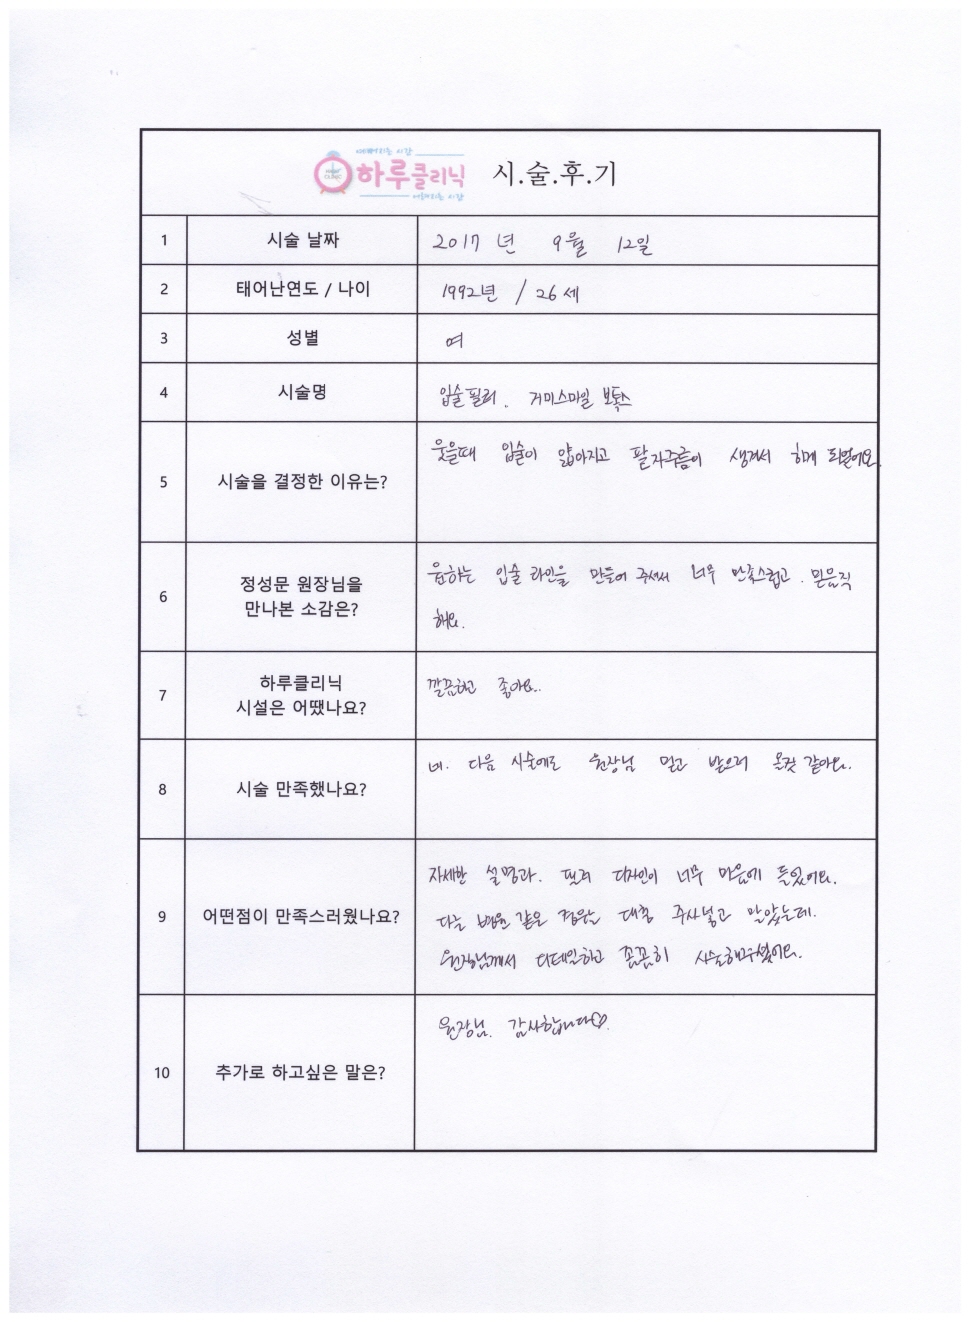 예뻐지는 시간
하루클리닉 시.술.후.기
어려지는 시간
1 시술 날짜 2017 년 9월 12일
2 태어난연도 / 나이 1992년 / 26세
3 성별 여
4 시술명 입술필러. 거미스마일 보톡스
5 시술을 결정한 이유는? 웃을때 입술이 얇아지고 팔자주름이 생겨서 하게 되었어요.
6 정성문 원장님을
만나본 소감은?
원하는 입술 라인을 만들어 주셔서 너무 만족스럽고. 믿음직
해요.
7 하루클리닉
시설은 어땠나요?
깔끔하고 좋아요..
8 시술 만족했나요? 네. 다음 시술에도 원장님 믿고 받으러 올것 같아요.
9 어떤점이 만족스러웠나요?
자세한 설명과. 필러 디자인이 너무 마음에 들었어요.
다른 병원 같은 경우는 대충 주사넣고 말았는데.
원장님께서 디테일하고 꼼꼼히 시술해주셨어요.
10 추가로 하고싶은 말은? 원장님. 감사합니다♡.